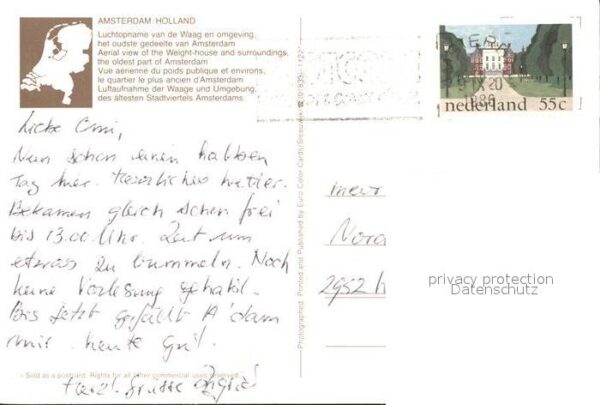 AMSTERDAM HOLLAND
Luchtopname van de Waag en omgeving,
het oudste gedeelte van Amsterdam
Aerial view of the Weight-house and surroundings,
the oldest part of Amsterdam
Vue aérienne du poids publique et environs,
le quartier le plus ancien d'Amsterdam
Luftaufnahme der Waage und Umgebung,
des ältesten Stadtviertels Amsterdams
Liebe Omi,
Nun schon einen halben
Tag hier. Herrliches Wetter.
Bekamen gleich schon frei
bis 13.00 Uhr. Zeit um
etwas zu bummeln. Noch
keine Vorlesung gehabt.
Bis jetzt gefällt A'dam
mir heute gut.
• Sold as a postcard. Rights for all other commercial uses reserved.
Herzl. Grüsse Ingrid
Photographed, Printed and Published by Euro Color Cards
nederland 55c
mevr
2952
privacy protection
Datenschutz